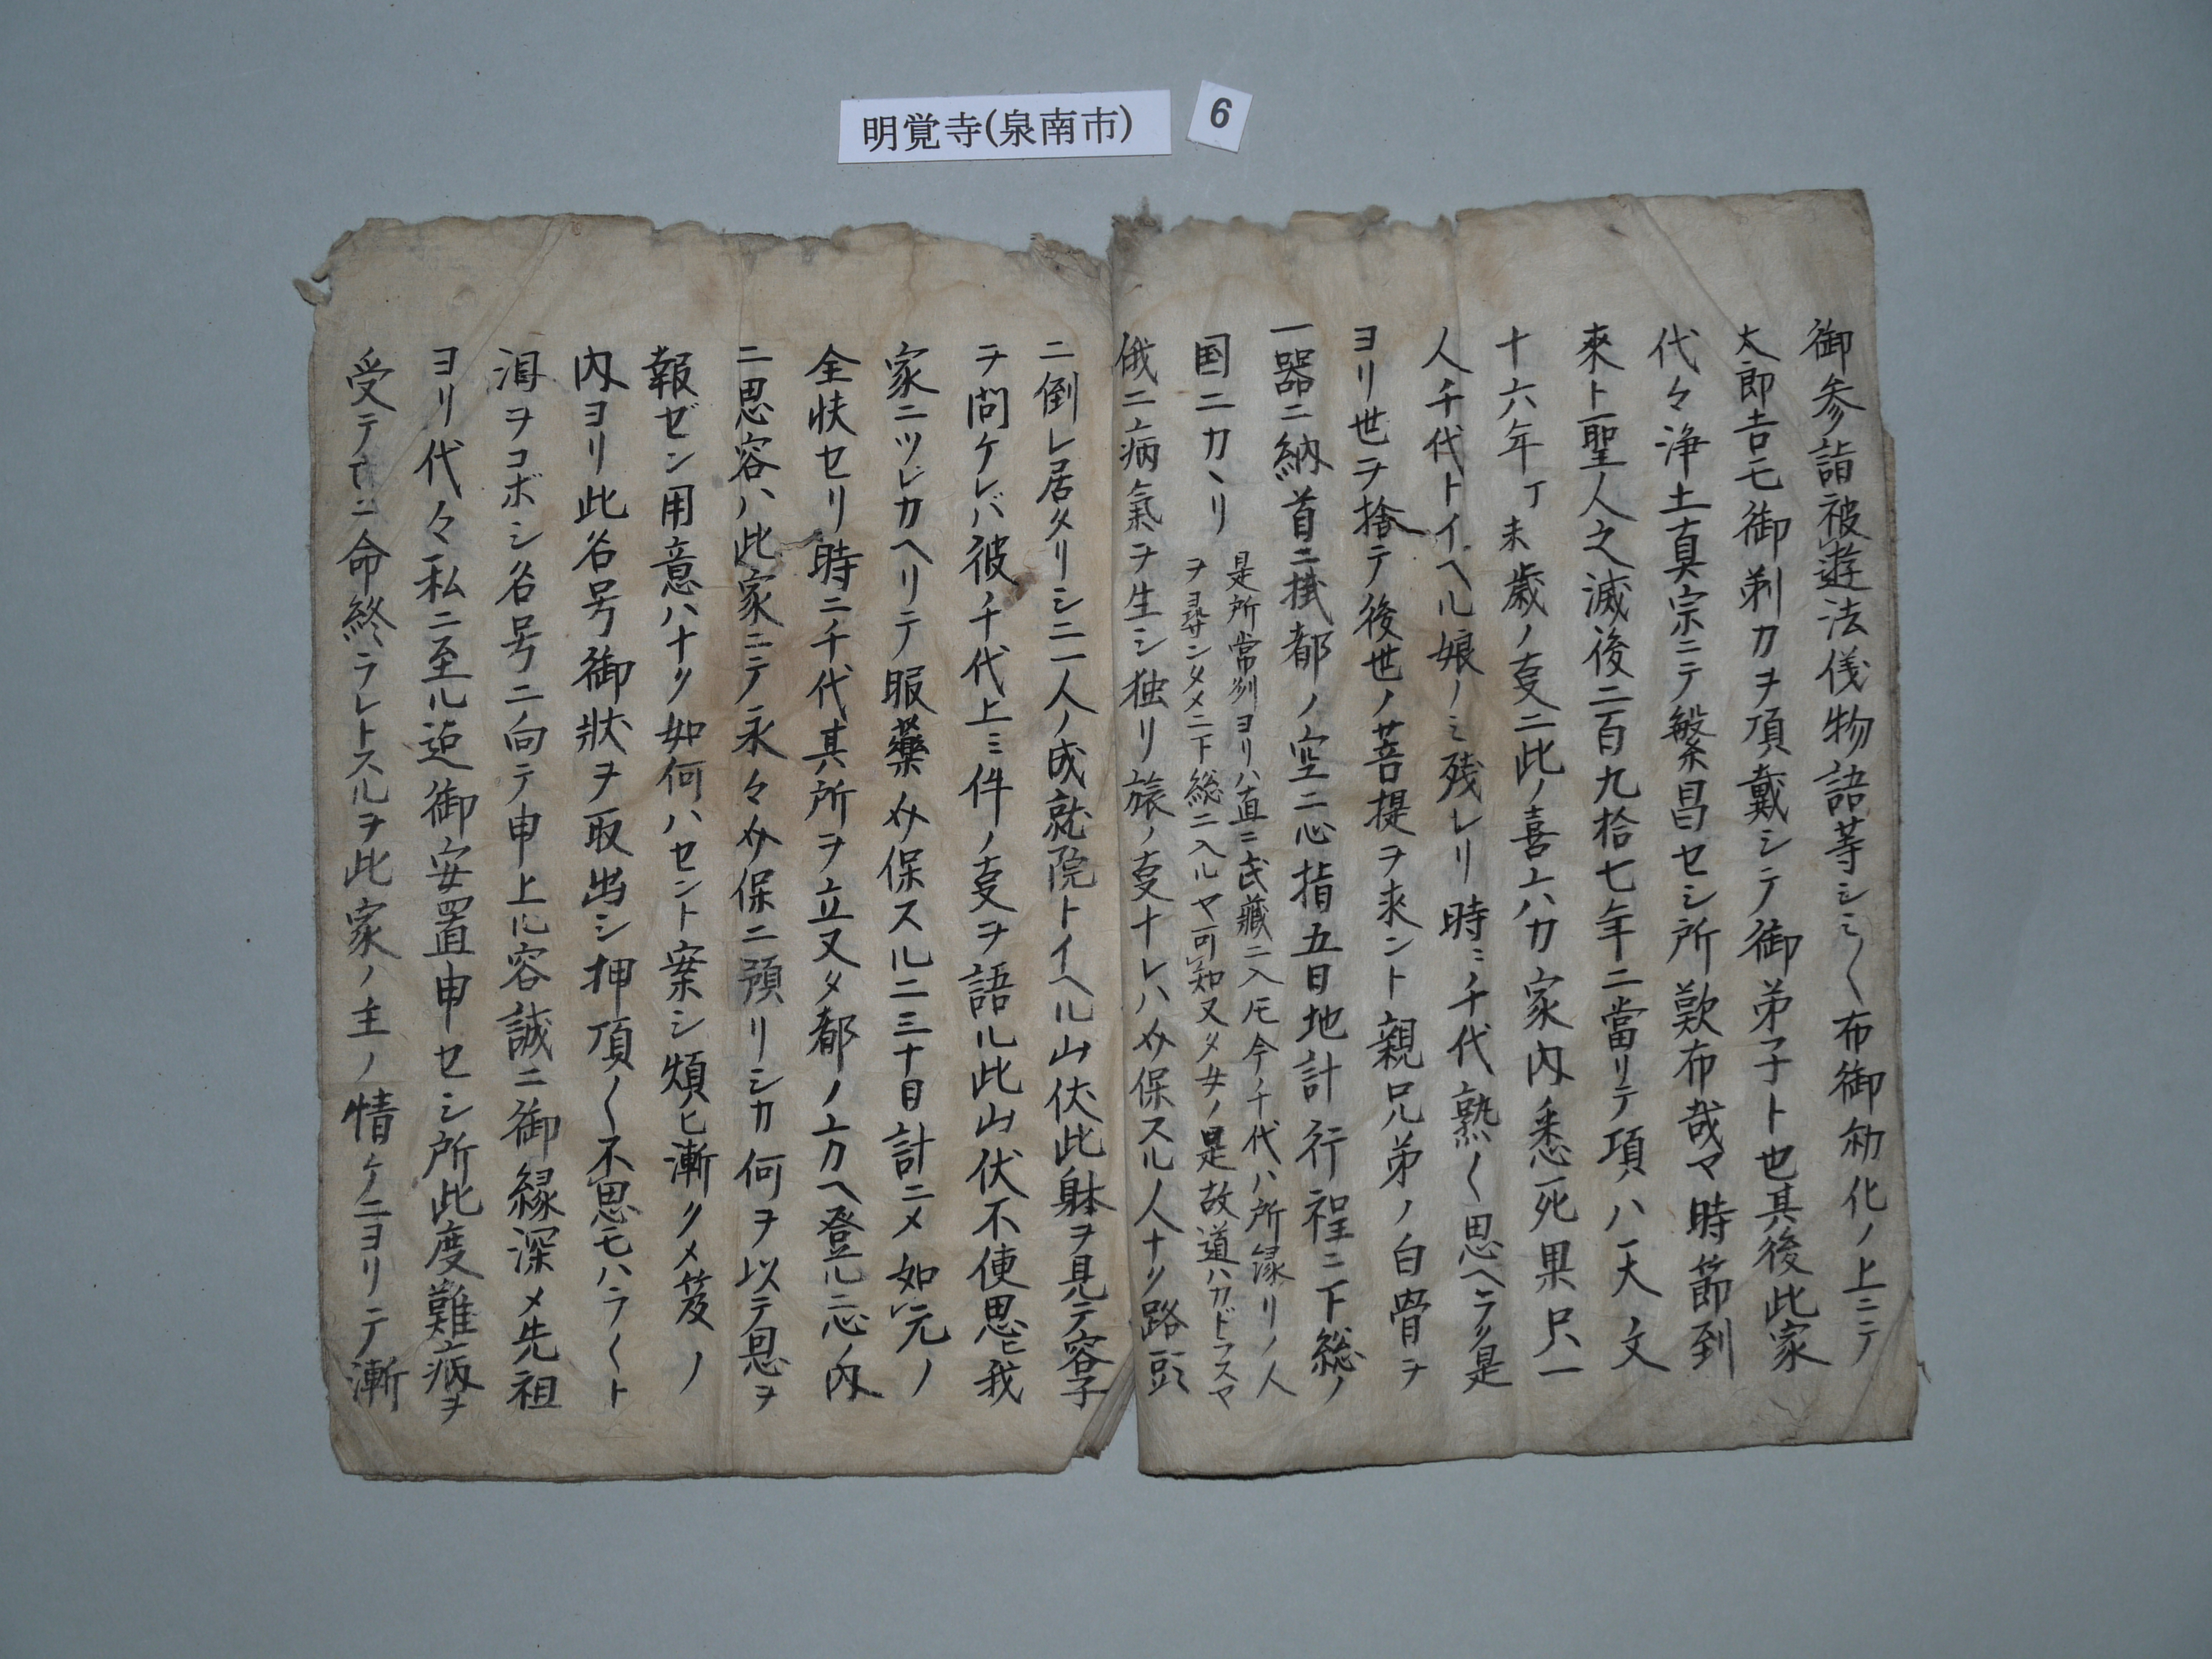 明覚寺(泉南市)
6
御参詣被遊法儀物語等シミ〱布御勧化ノ上ニテ
太郎吉モ御剃カヲ頂戴シテ御弟子ト也其後此家
代々浄土真宗ニテ繁昌セシ所歎布哉マ時節到
來ト聖人之滅後二百九拾七年ニ當リテ項ハ天文
十六年丁未歳ノ叓ニ此ノ喜六カ家内悉死果只一
人千代トイヘル娘ノミ残レリ時ニ千代熟〱思ヘラク是
ヨリ世ヲ捨テ後世ノ菩提ヲ求ント親兄弟ノ白骨ヲ
一器ニ納首ニ掛都ノ空ニ心指五日地計行程ニ下総ノ
国ニカヽリ
是所常州ヨリハ直ニ武藏ニ入圧今千代ハ所縁リノ人
ヲヨ尋ンタメニ下総ニ入ルヤ可知又タ女ノ是故道ハカドラスヤ
俄ニ病氣ヲ生シ独リ旅ノ叓ナレハ介保スル人ナク路頭
ニ倒レ居タリシニ一人ノ成就院トイヘル山伏此躰ヲ見テ容子
ヲ問ケレバ彼ノ千代上ミ件ノ叓ヲ語ル此山伏不便思ヒ我
家ニツレカヘリテ服藥介保スルニ三十日計ニメ如元ノ
全快セリ時ニ千代其所ヲ立又タ都ノ上カヘ登ルニ心ノ内
ニ思容ハ此家ニテ永々介保ニ預リシカ何ヲ以テ恩ヲ
報ゼン用意ハナク如何ハセント案シ煩ヒ漸クメ笈ノ
内ヨリ此名号御狀ヲ取出シ押頂〱不思モハラ〱ト
泪ヲコボシ名号ニ向テ申上ル容誠ニ御縁深メ先祖
ヨリ代々私ニ至ル迠御安置申セシ所此度難病ヲ
受テ命終ラレトスルヲ此家ノ主ノ情ケニヨリテ漸